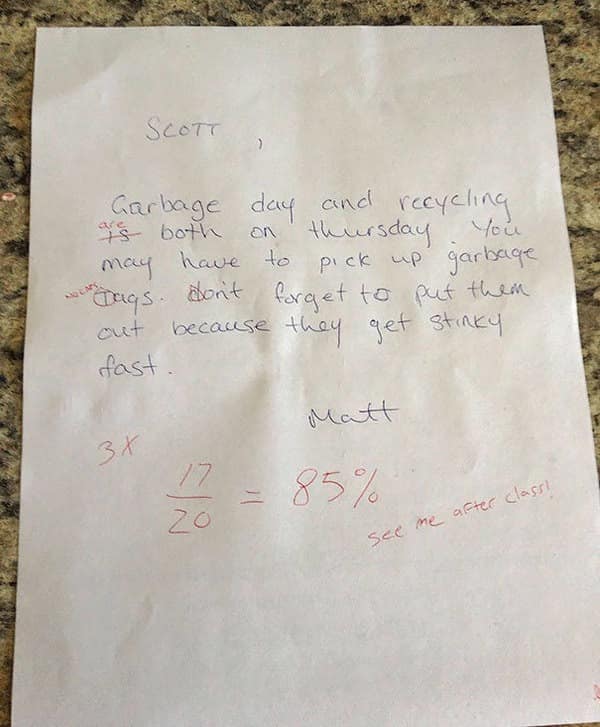 SCOTT ,
Garbage day and recycling
are
is both on thursday. You
may have to pick up garbage
no caps Tags. don't forget to put them
out because they get stinky
fast.
Matt
3X
17
20 = 85%
see me after class!